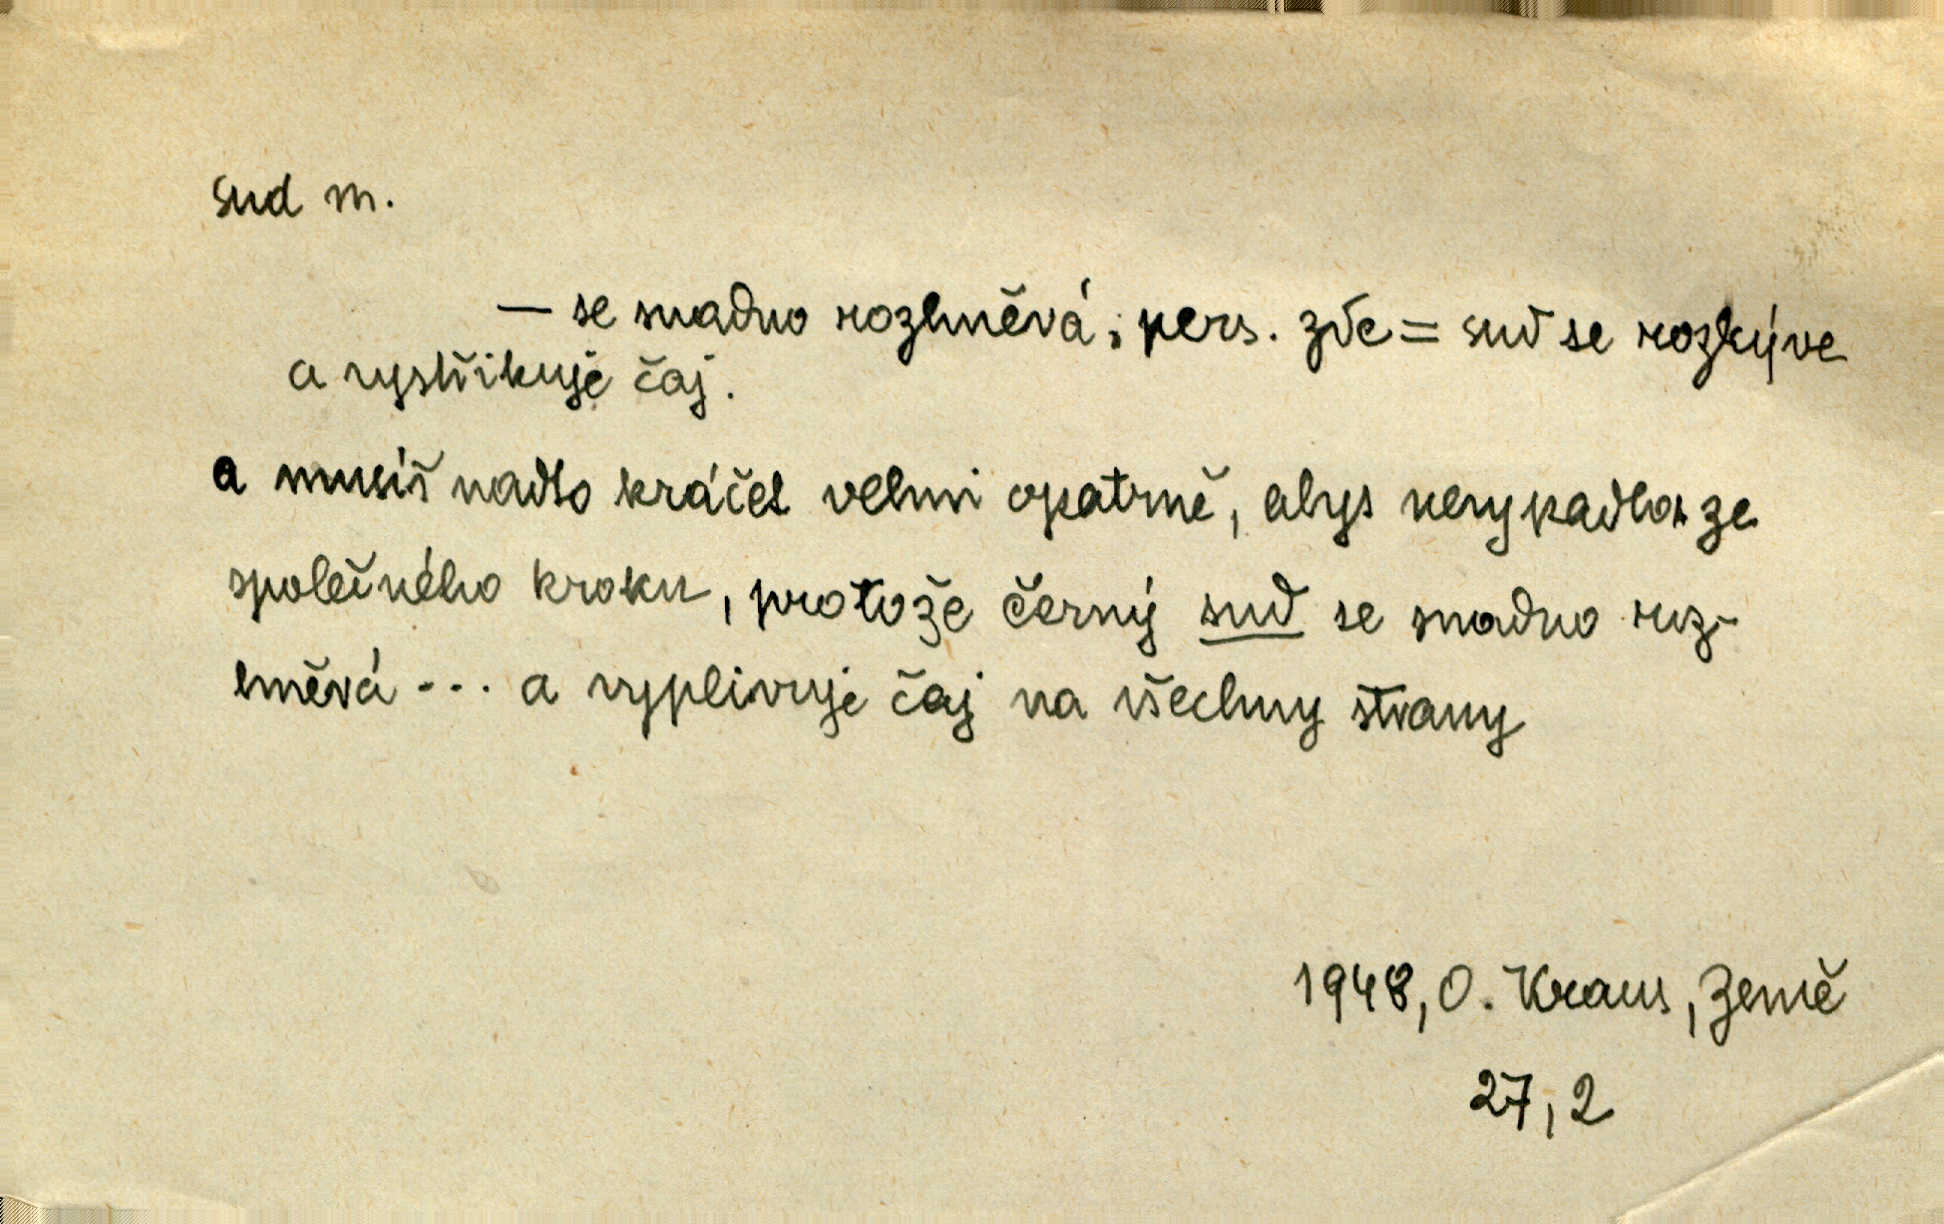 sud m.
— se snadno rozhněvá; pers. zde = sud se rozkýve
a vystřikuje čaj.
a musíš nadto kráčet velmi opatrně, abys nevypadla ze
společného kroku, protože černý sud se snadno roz-
hněvá ... a vyplivuje čaj na všechny strany
1948, O. Kraus, Země
27, 2